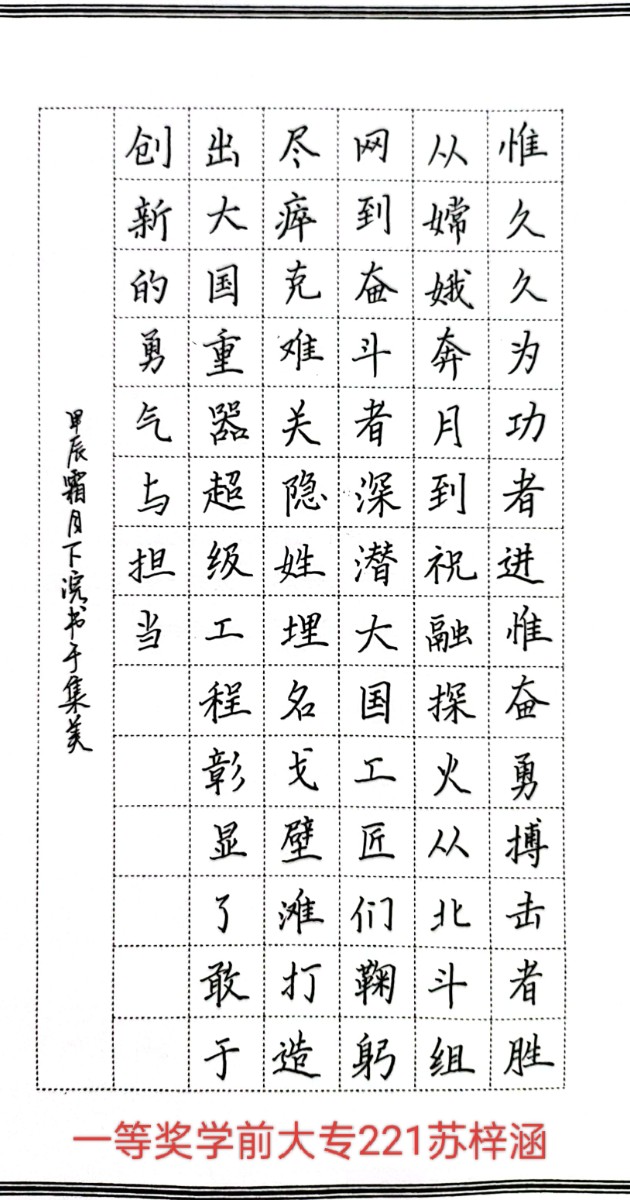 惟久久为功者进惟奋勇搏击者胜
从嫦娥奔月到祝融探火从北斗组
网到奋斗者深潜大国工匠们鞠躬
尽瘁克难关隐姓埋名戈壁滩打造
出大国重器超级工程彰显了敢于
创新的勇气与担当
甲辰霜月下浣书于集美
一等奖学前大专221苏梓涵